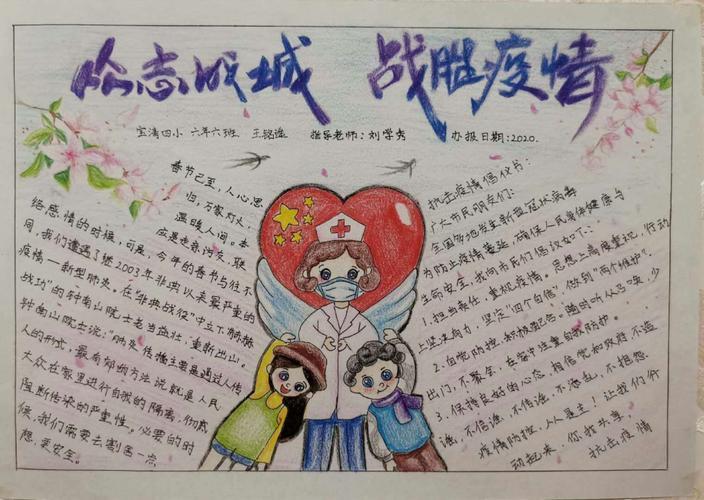 众志成城 战胜疫情
宝清四小 六年六班 王铭谣 指导老师：刘学秀 办报日期：2020.
春节已至，人心思
归，万家灯火，
温暖人间。本
应是走亲访友，联
络感情的时候，可是，今年的春节与往不
同，我们遭遇了继2003年非典以来最严重的
疫情—新型肺炎。在"非典战役"中立下赫赫
战功"的钟南山院士老当益壮，重新出山。
钟南山院士说："肺炎传播主要是通过人传
人的形式，最有效的方法说就是人民
大众在家里进行自我的隔离，彻底
阻断传染的严重性。必要的时
候，我们需要去割舍一点
想，要安全。
抗击疫情倡议书：
广大市民朋友们：
全国各地发生新型冠状病毒
为防止疫情蔓延，确保人民身体健康与
生命安全，我向市民们倡议如下：
1.担当责任，重视疫情。思想上高度重视，行动
上坚决有力，坚定"四个自信"，做到"两个维护"。
2.自觉防控，积极配合。邀时听从号召，少
出门，不聚会，在家中注重自我防护。
3.保持良好的心态，相信党和政府不造
谣，不信谣，不传谣，不添乱，不相怨
疫情防控，人人是主！让我们行
动起来，你我共享，
抗击疫情